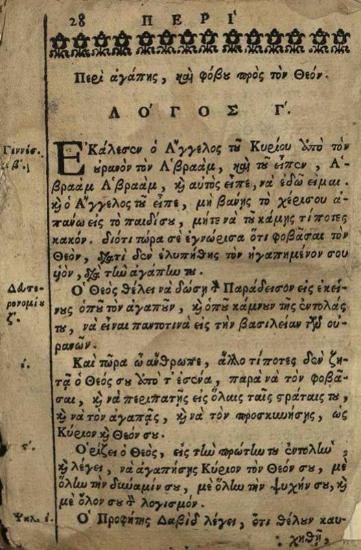 28 ΠΕΡΙ
Περὶ ἀγάπης, καὶ φόβου πρὸς τὸν Θεόν.
ΛΟΓΟΣ Γʹ.
Γεννέσ.
κβʹ.
ΕΚάλεσεν ὁ Ἄγγελος τοῦ Κυρίου ἀπὸ τὸν
οὐρανὸν τὸν Ἀβραάμ, καὶ τοῦ εἶπεν, Ἀ-
βραὰμ Ἀβραάμ, καὶ αὐτὸς εἶπε, νὰ ἐδῶ εἶμαι.
καὶ ὁ Ἄγγελος τοῦ εἶπε, μὴ βάνῃς τὸ χέρι σου ἀ-
πάνω εἰς τὸ παιδί σου, μήτε νὰ τοῦ κάμῃς τίποτες
κακόν. διότι τώρα σὲ ἐγνώρισα ὅτι φοβᾶσαι τὸν
Θεόν, διατὶ δὲν ἐλυπήθης τὸν ἠγαπημένον σου
υἱόν, διὰ τὴν ἀγάπην του.
Δευτε-
ρονομίου
ζʹ.
Ὁ Θεὸς θέλει νὰ δώσῃ τὸν Παράδεισον εἰς ἐκεί-
νους ὁποῦ τὸν ἀγαποῦν, καὶ ὁποῦ κάμνουν τὰς ἐντολάς
του, νὰ εἶναι παντοτινὰ εἰς τὴν βασιλείαν τῶν οὐ-
ρανῶν.
ιʹ.
Καὶ τώρα ὦ ἄνθρωπε, ἄλλο τίποτες δὲν ζη-
τᾷ ὁ Θεός σου ἀπὸ τ᾽ ἐσένα, παρὰ νὰ τὸν φοβᾶ-
σαι, καὶ νὰ περιπατῇς εἰς ὅλαις ταῖς στράταις του,
καὶ νὰ τὸν ἀγαπᾷς, καὶ νὰ τὸν προσκυνήσῃς, ὡς
Κύριον καὶ Θεόν σου.
ςʹ.
Ὁρίζει ὁ Θεὸς, εἰς τὴν πρώτην του ἐντολὴν
καὶ λέγει, νὰ ἀγαπήσῃς Κύριον τὸν Θεόν σου, μὲ
ὅλην τὴν δύναμίν σου, μὲ ὅλην τὴν ψυχήν σου, καὶ
μὲ ὅλον σου τὸν λογισμόν.
Ψαλ. ι
Ὁ Προφήτης Δαβὶδ λέγει, ὅτι θέλουν καυ-
χηθῆ,